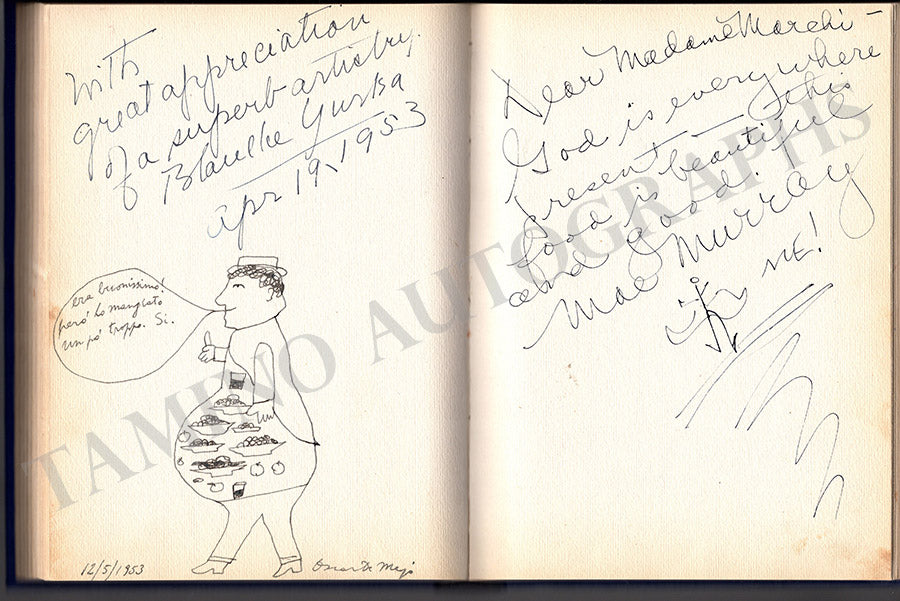 With
great appreciation
of a superb artistry.
Blanche Yurka
Apr 19, 1953
era buonissimo!
però ho mangiato
un pó troppo. Si.
12/5/1953
Oscar De Mejo
Dear Madame Marchi –
God is everywhere
present – this
food is beautiful
and good!
Mae Murray
ME!
TAMINO AUTOGRAPHS